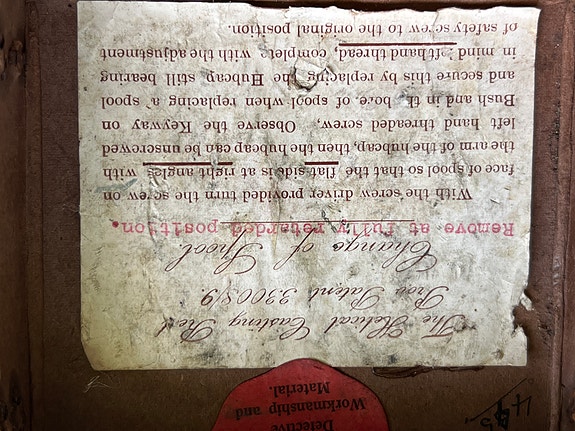 The Helical Casting Reel
Prov Patent 33008/9.
Change of Spool.
Remove at fully retarded position.
With the screw driver provided turn the screw on
face of spool so that the flat side is at right angles with
the arm of the hubcap, then the hubcap can be unscrewed
left hand threaded screw, Observe the Keyway on
Bush and in the bore, of spool when replacing a spool
and secure this by replacing the Hubcap still bearing
in mind left hand thread, complete with the adjustment
of safety screw to the original position.
Defective
Workmanship and
Material.